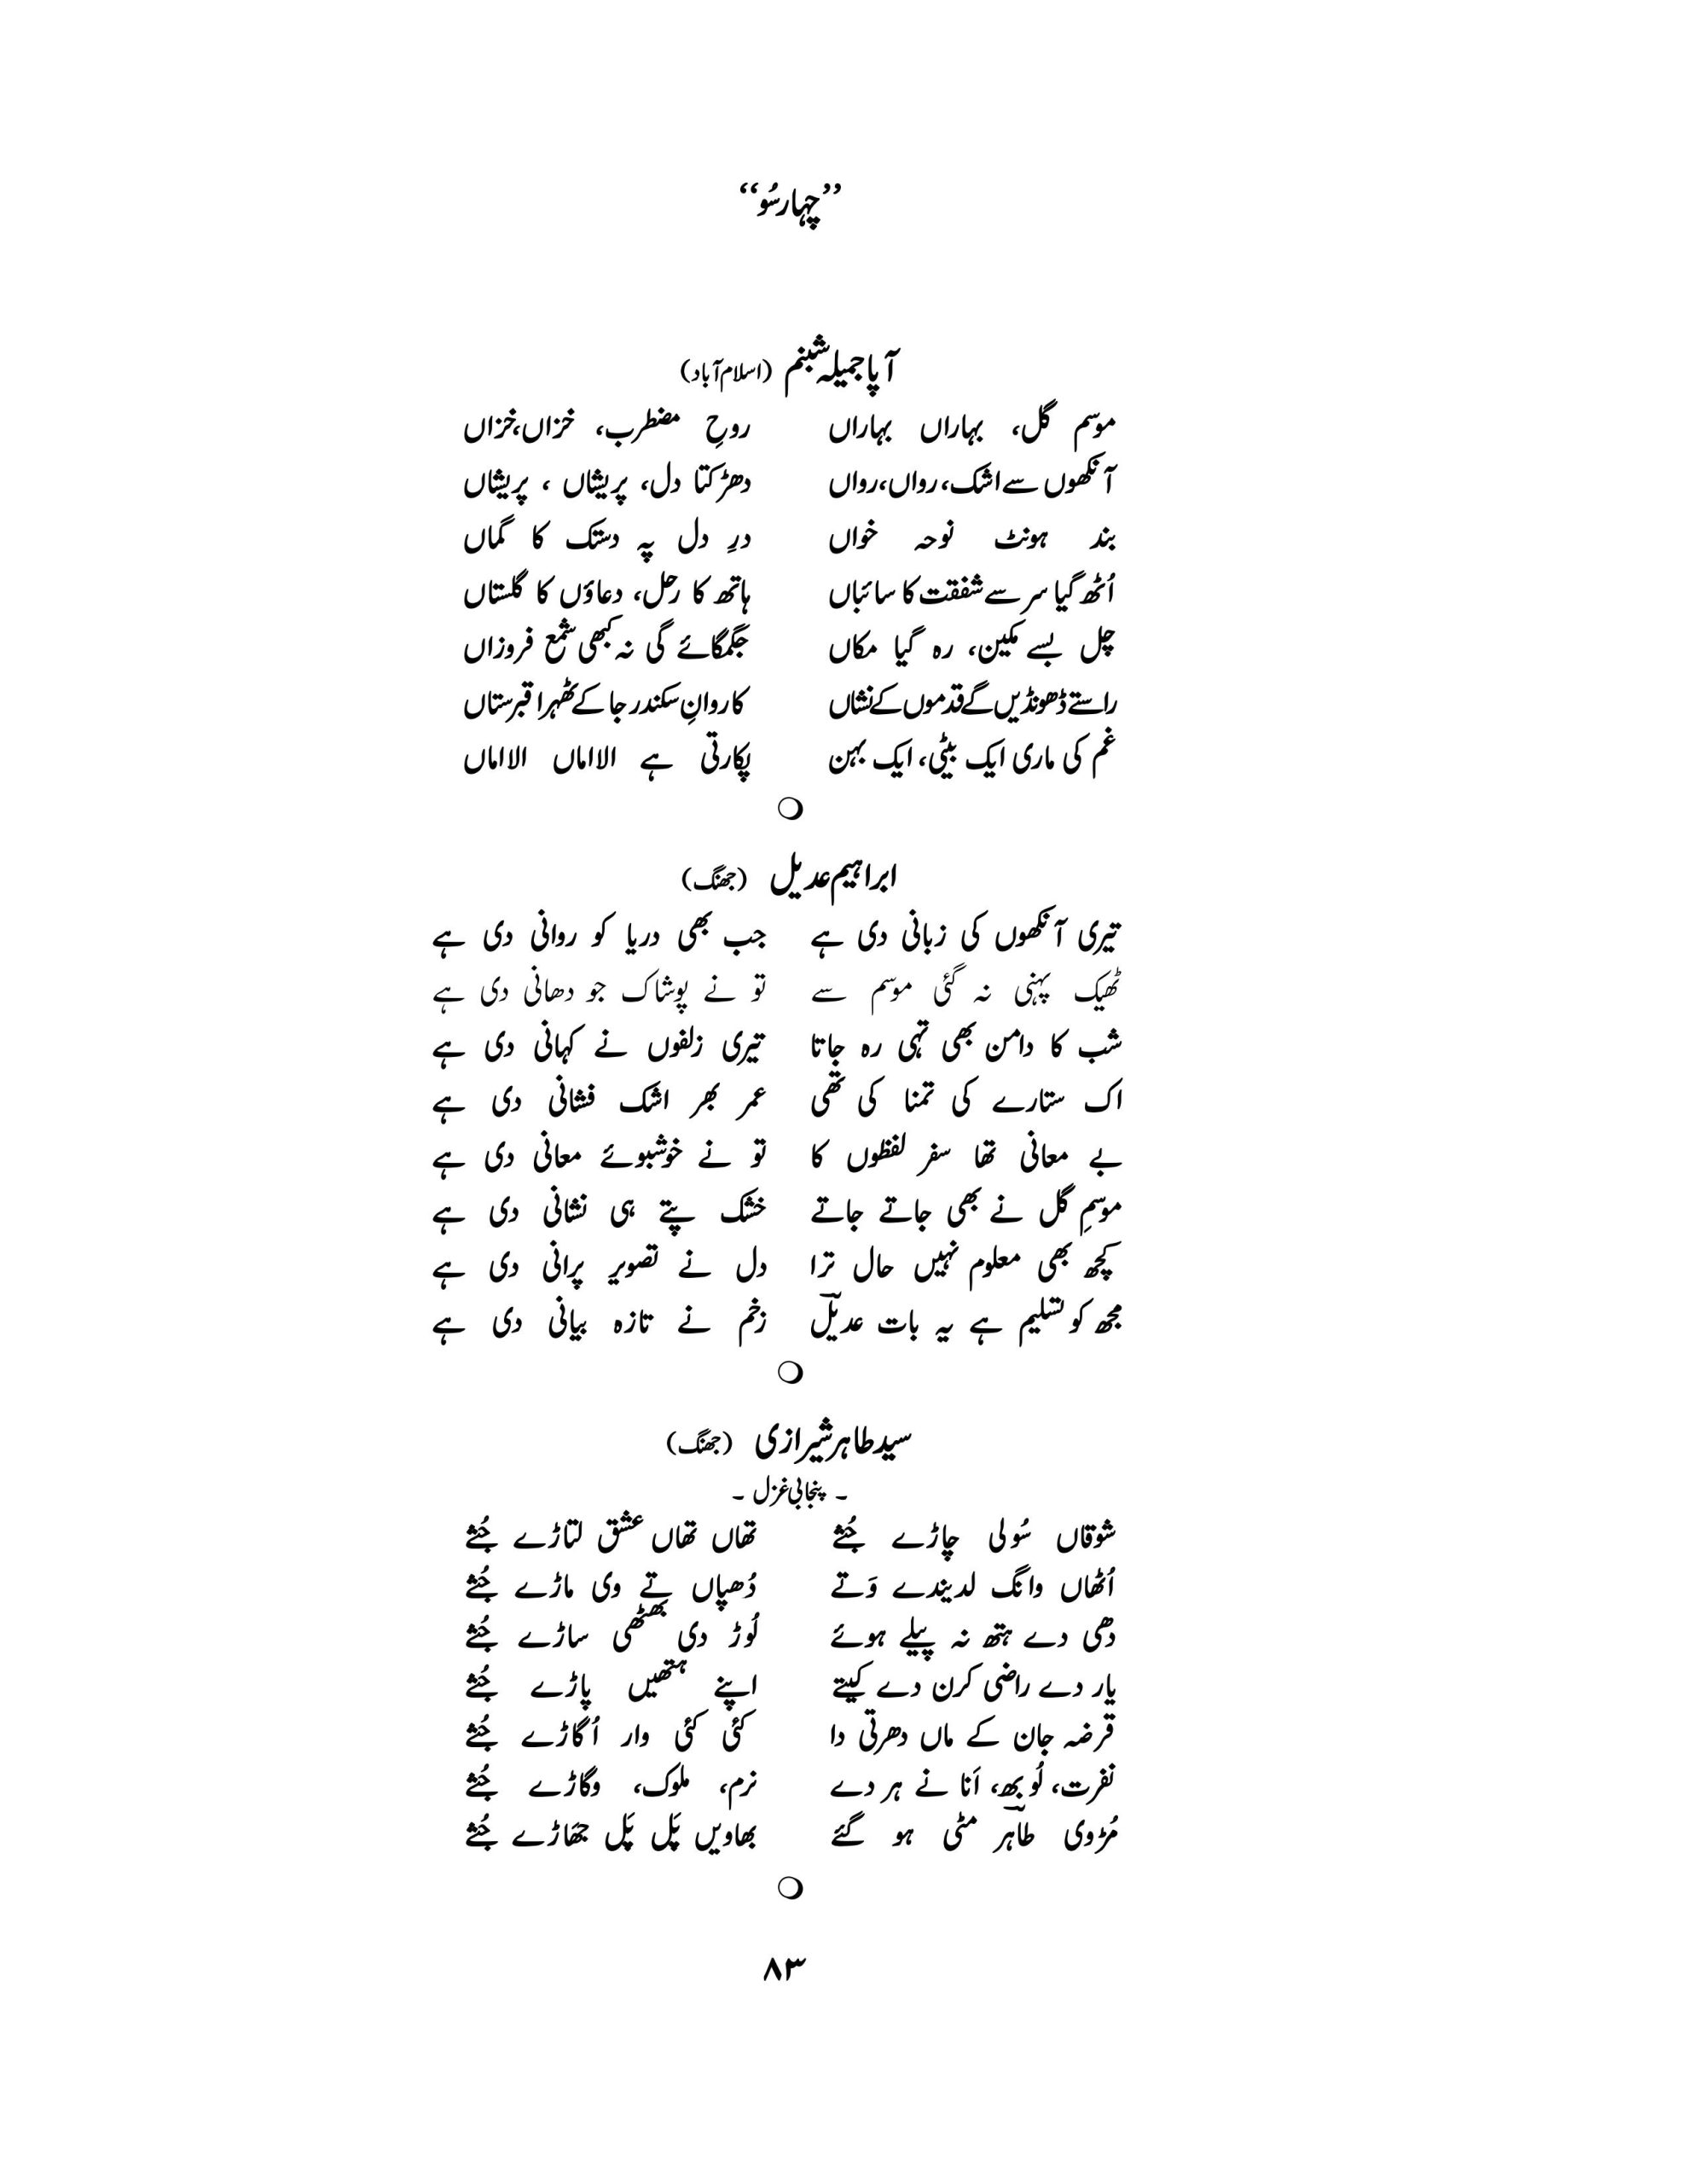 ”چہارسُو“
آپا جمیلہ شبنم (اسلام آباد)
موسم گل، بہاراں بہاراں روحِ مضطرب، خزاں،خزاں
آنکھوں سے اشک، رواں،رواں دھڑکتا دل، پریشاں ، پریشاں
بند ہونٹ نوحہ خواں درِ دل پہ دستک کا گماں
اُٹھ گیا سر سے شفقت کا سائباں ہاتھ کا رحل، دعاؤں کا گلستاں
چل بسے مکین، رہ گیا مکاں جگمگائے گی نہ کبھی شمع فروزاں
راستے ڈھونڈیں گے قدموں کے نشاں کاروانِ سکندر جا کے ٹھہرا قبرستاں
غم کی ماری ایک بیٹی، ایک بہن پکارتی ہے الااماں الااماں
○
ابراہیم عدیل (جھنگ)
تیری آنکھوں کی زبانی دی ہے جب بھی دریا کو روانی دی ہے
ٹھیک پہنی نہ گئی موسم سے تو نے پوشاک جو دھانی دی ہے
شب کا دامن بھی تہی رہ جاتا تیری زلفوں نے کہانی دی ہے
اک ستارے کی تمنا کی تھی عمر بھر اشک فشانی دی ہے
بے معانی تھا سفر لفظوں کا تو نے خوشبوئے معانی دی ہے
موسمِ گل نے بھی جاتے جاتے خشک پتے ہی نشانی دی ہے
کچھ بھی معلوم نہیں حال ترا دل نے تصویر پرانی دی ہے
مجھ کو تسلیم ہے یہ بات عدیلؔ زخم نے تازہ بیانی دی ہے
○
سید طاہر شیرازی (جھنگ)
۔ پنجابی غزل ۔
شوقاں سُولی چاڑے جُثے تھاں تھاں عشق لتاڑے جُثے
اُٹھاں وانگ لدیندے وَتے دُھپاں تے وی ماڑے جُثے
دھی دے ہتھ نہ پیلے ہوئے لُوڑ دی بھٹھی ساڑے جُثے
یار دے راضی کرن دے کیتے اپنے ہتھیں پاڑے جُثے
قرضہ جان کے ماں دھرتی دا کئی کئی وار اُگاڑے جُثے
نفرت، لُوبھ، اَنا نے ہر دے نرم، ملوک، وگاڑے جُثے
مُڑ وی طاہرؔ مٹی ہو گئے بھاویں پَل پَل جھاڑے جُثے
○
۸۳